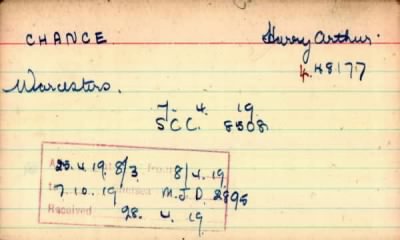 CHANCE. Harry Arthur.
4.48177
Worcesters.
7. 4. 19.
SCC. 8508
25.4.19. 8/3 8/4.19.
7.10.19 M.J.D. 2895
Received
28. 4. 19